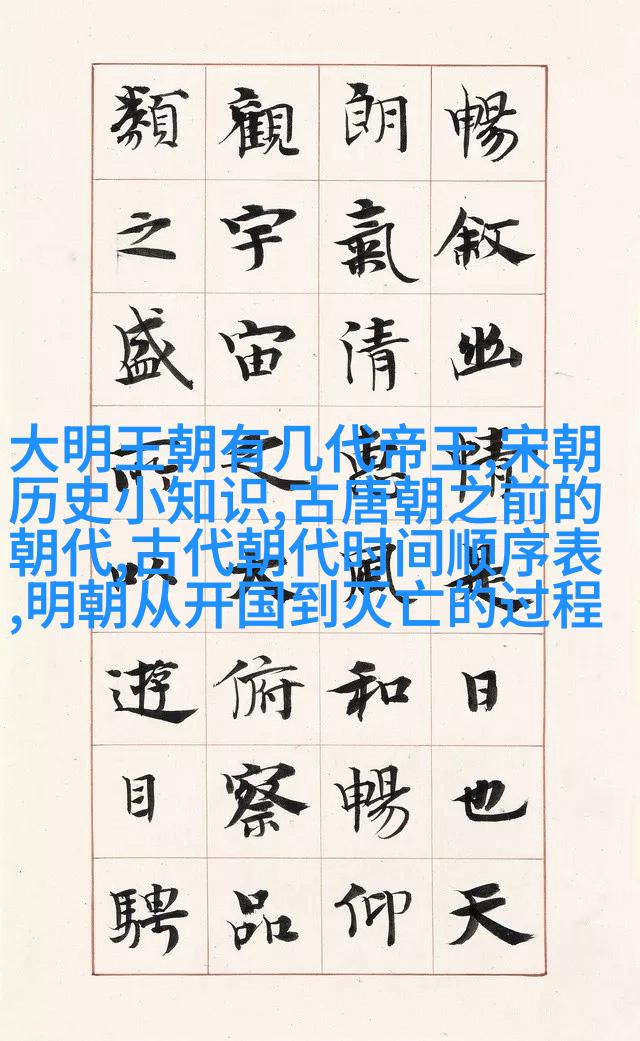 大明王朝有几代帝王,宋朝
历史小知识,古唐朝之前的
朝代,古代朝代时间顺序表
,明朝从开国到灭亡的过程
暢敘幽情是日也天
朗氣清惠風和暢仰
觀宇宙之大俯察品
類之盛所以遊目騁